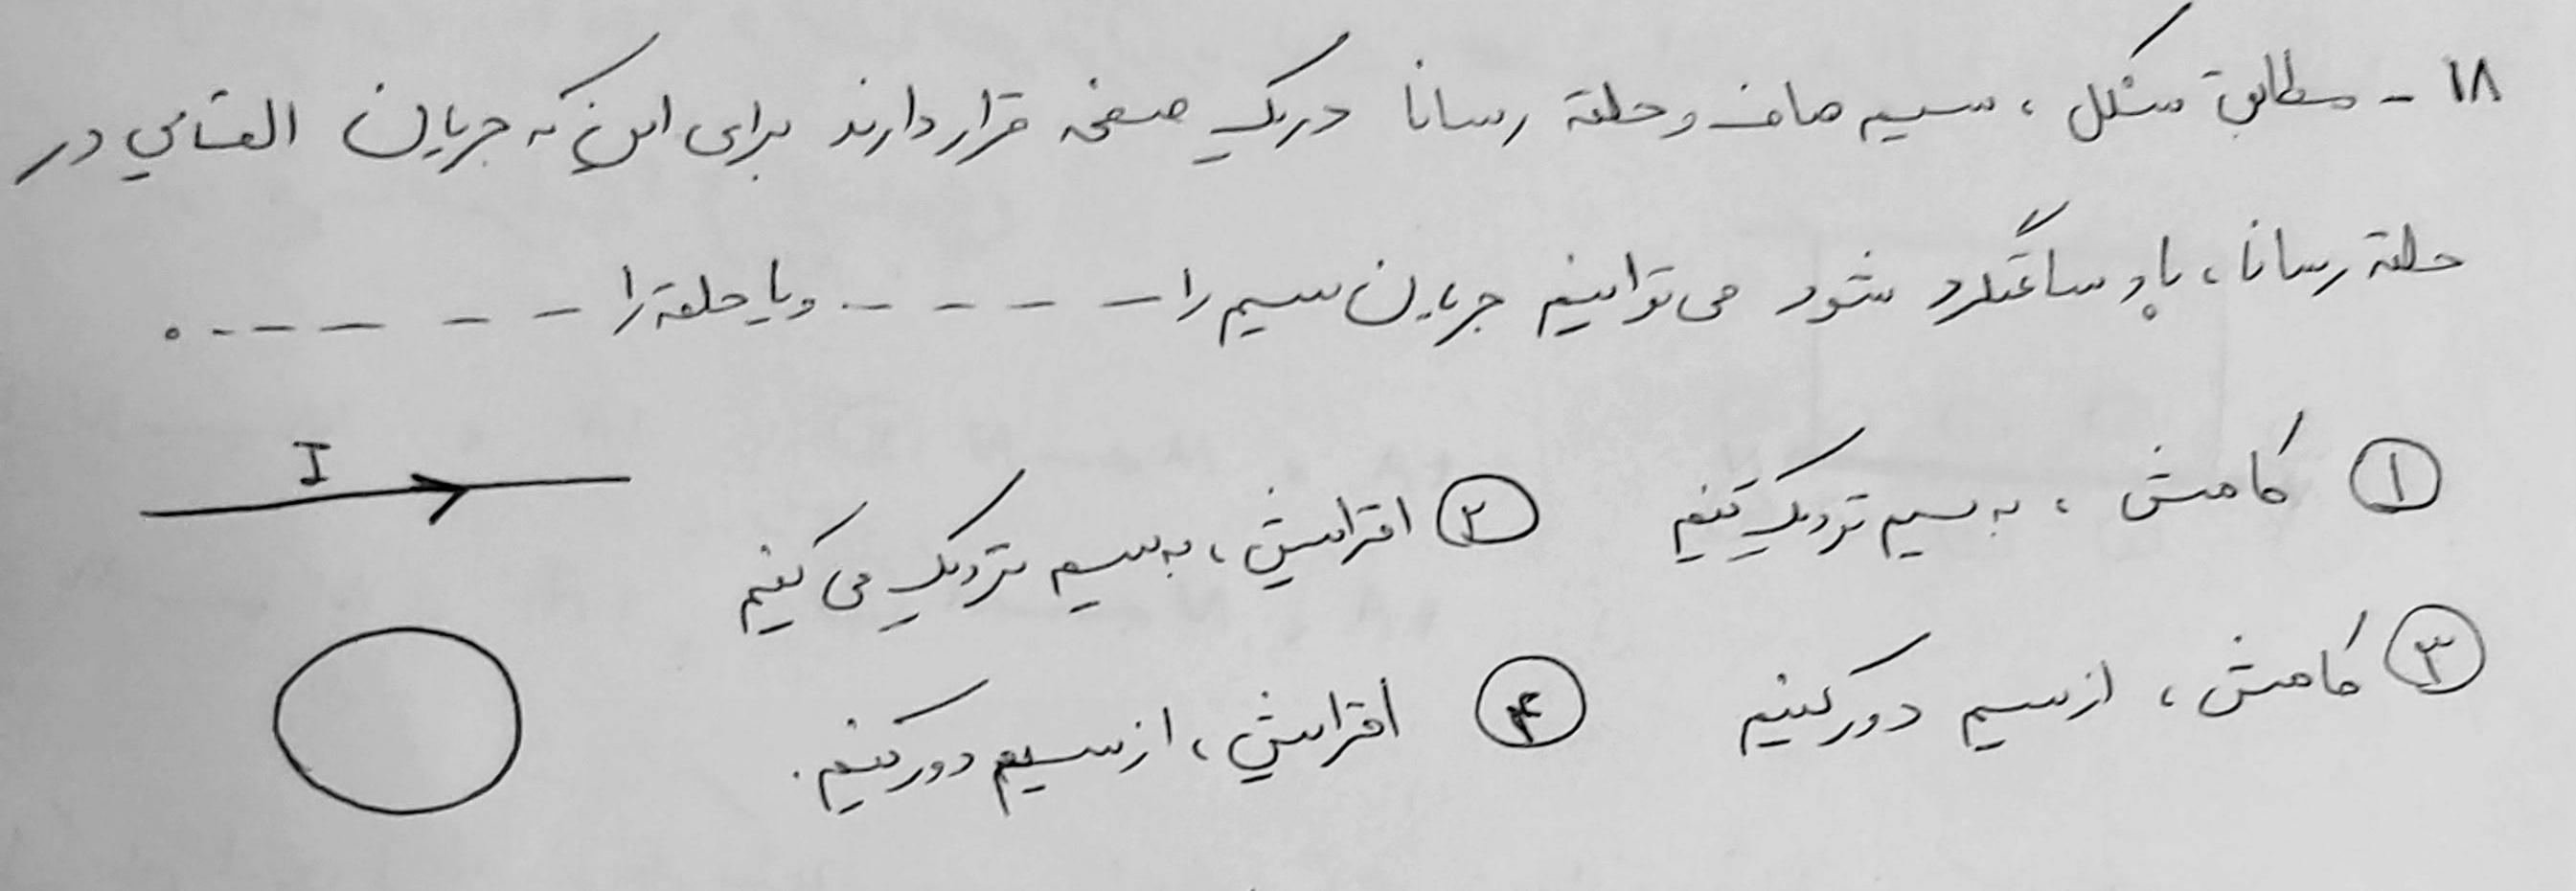 ۱۸ - مطابق شکل ، سیم صاف و حلقه رسانا در یک صفحه قرار دارند برای این که جریان القایی در
حلقه رسانا ، پادساعتگرد شود می توانیم جریان سیم را - - - - - و یا حلقه را - - - - - - .
۱ کاهش ، به سیم نزدیک کنیم ۲ افزایش ، به سیم نزدیک می کنیم
I
۳ کاهش ، از سیم دور کنیم ۴ افزایش ، از سیم دور کنیم .